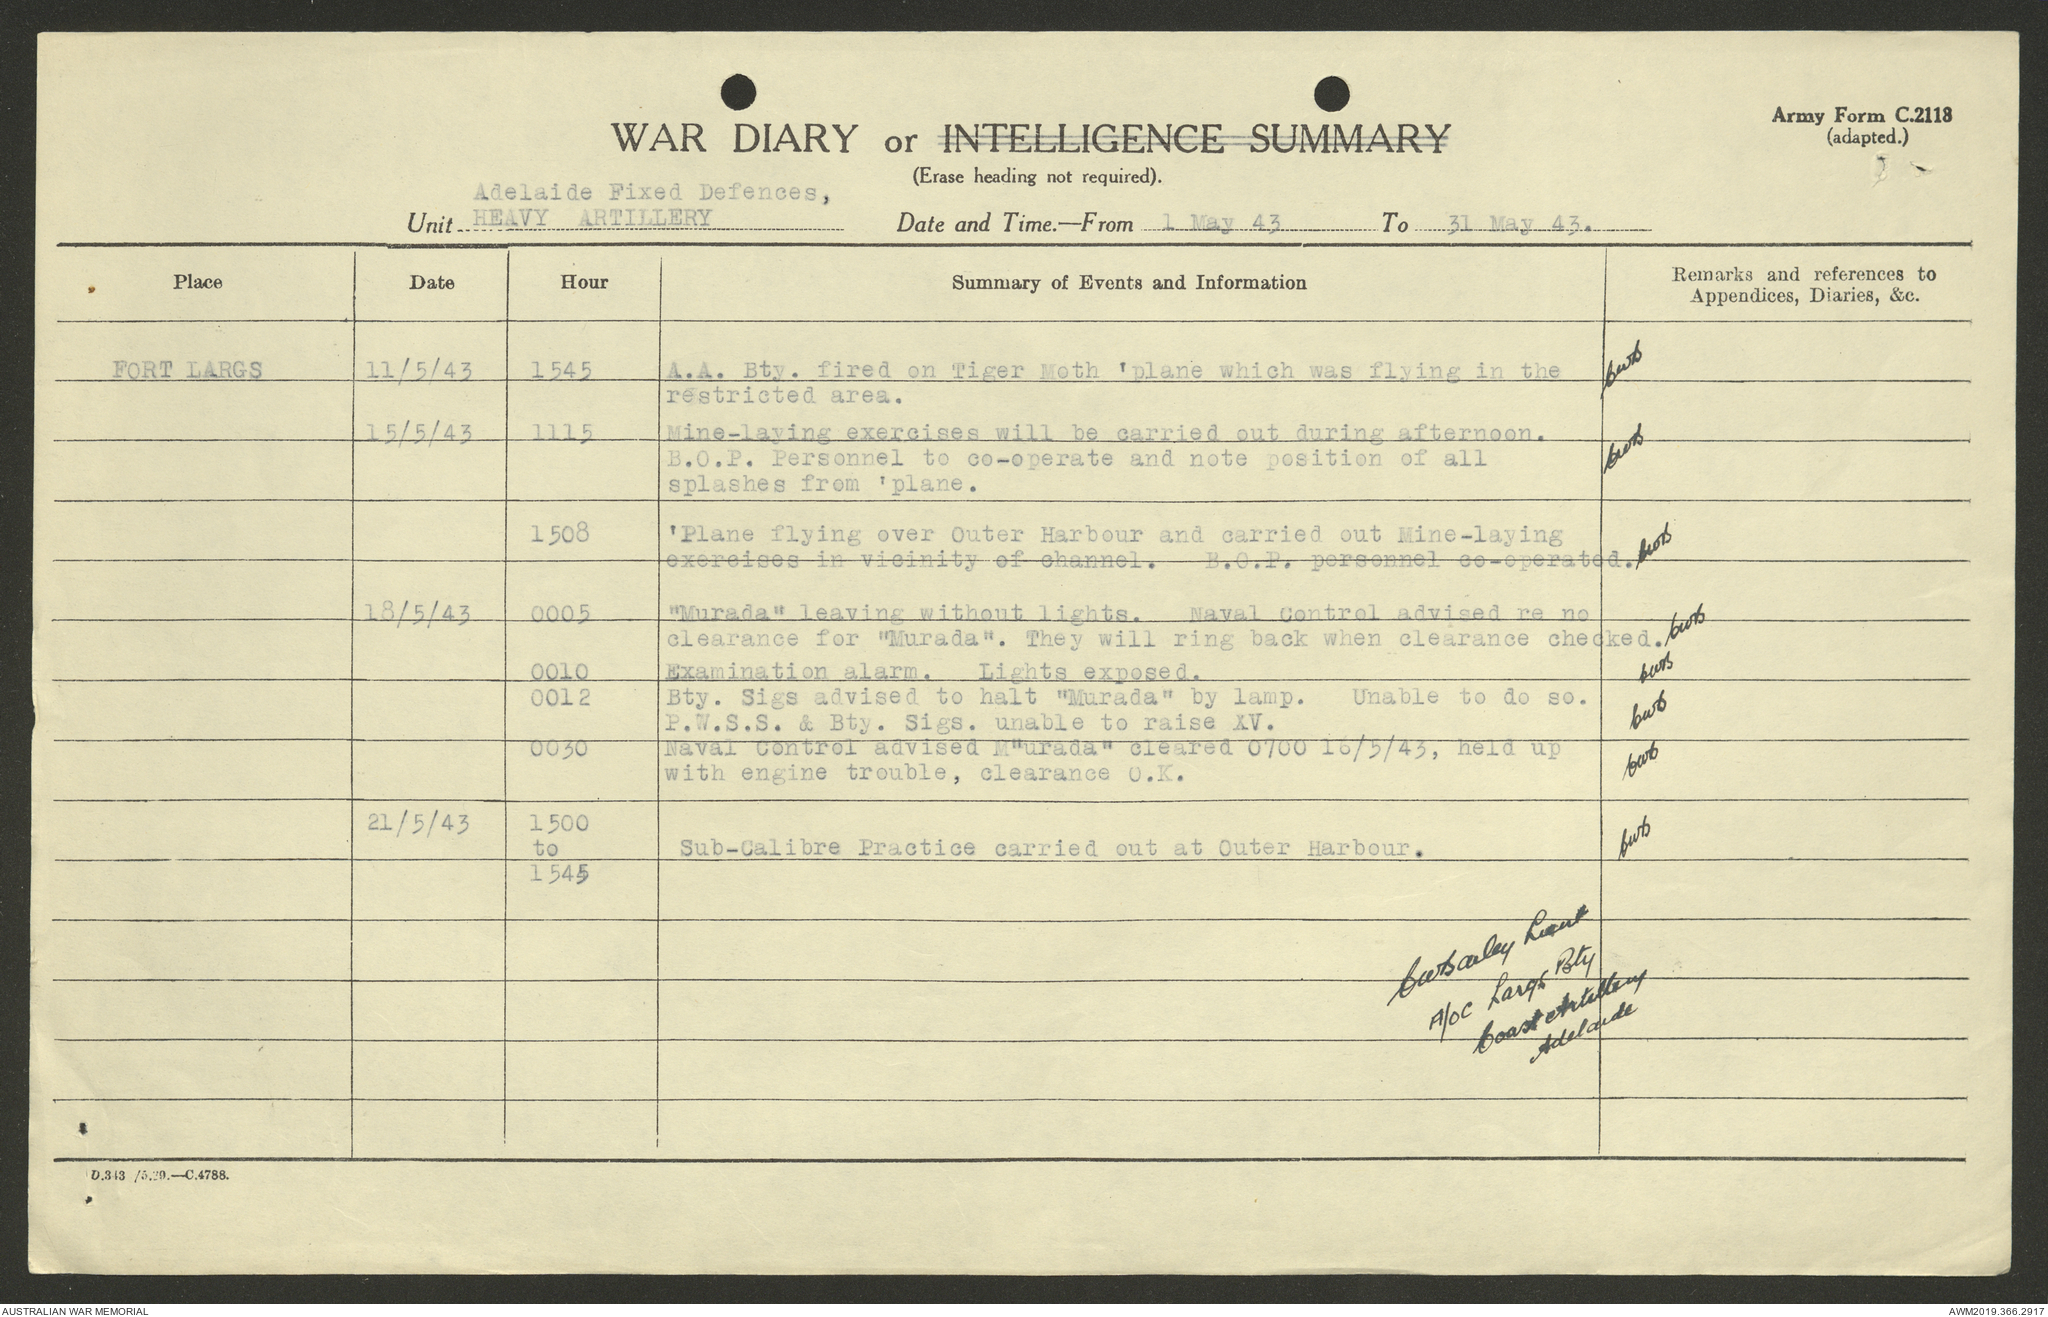 Army Form C.2118
(adapted.)
WAR DIARY or INTELLIGENCE SUMMARY
(Erase heading not required).
Adelaide Fixed Defences,
Unit HEAVY ARTILLERY Date and Time.—From 1 May 43 To 31 May 43.
Place Date Hour Summary of Events and Information Remarks and references to
Appendices, Diaries, &c.
FORT LARGS 11/5/43 1545 A.A. Bty. fired on Tiger Moth 'plane which was flying in the
restricted area.
15/5/43 1115 Mine-laying exercises will be carried out during afternoon.
B.O.P. Personnel to co-operate and note position of all
splashes from 'plane.
1508 'Plane flying over Outer Harbour and carried out Mine-laying
exercises in vicinity of channel. B.O.P. personnel co-operated.
18/5/43 0005 "Murada" leaving without lights. Naval Control advised re no
clearance for "Murada". They will ring back when clearance checked.
0010 Examination alarm. Lights exposed.
0012 Bty. Sigs advised to halt "Murada" by lamp. Unable to do so.
P.W.S.S. & Bty. Sigs. unable to raise XV.
0030 Naval Control advised M"urada" cleared 0700 16/5/43, held up
with engine trouble, clearance O.K.
21/5/43 1500
to Sub-Calibre Practice carried out at Outer Harbour.
1545
Lieut
A/OC Largs Bty
Coast Artillery
Adelaide
D.343 /5.39.—C.4788.
AUSTRALIAN WAR MEMORIAL AWM2019.366.2917